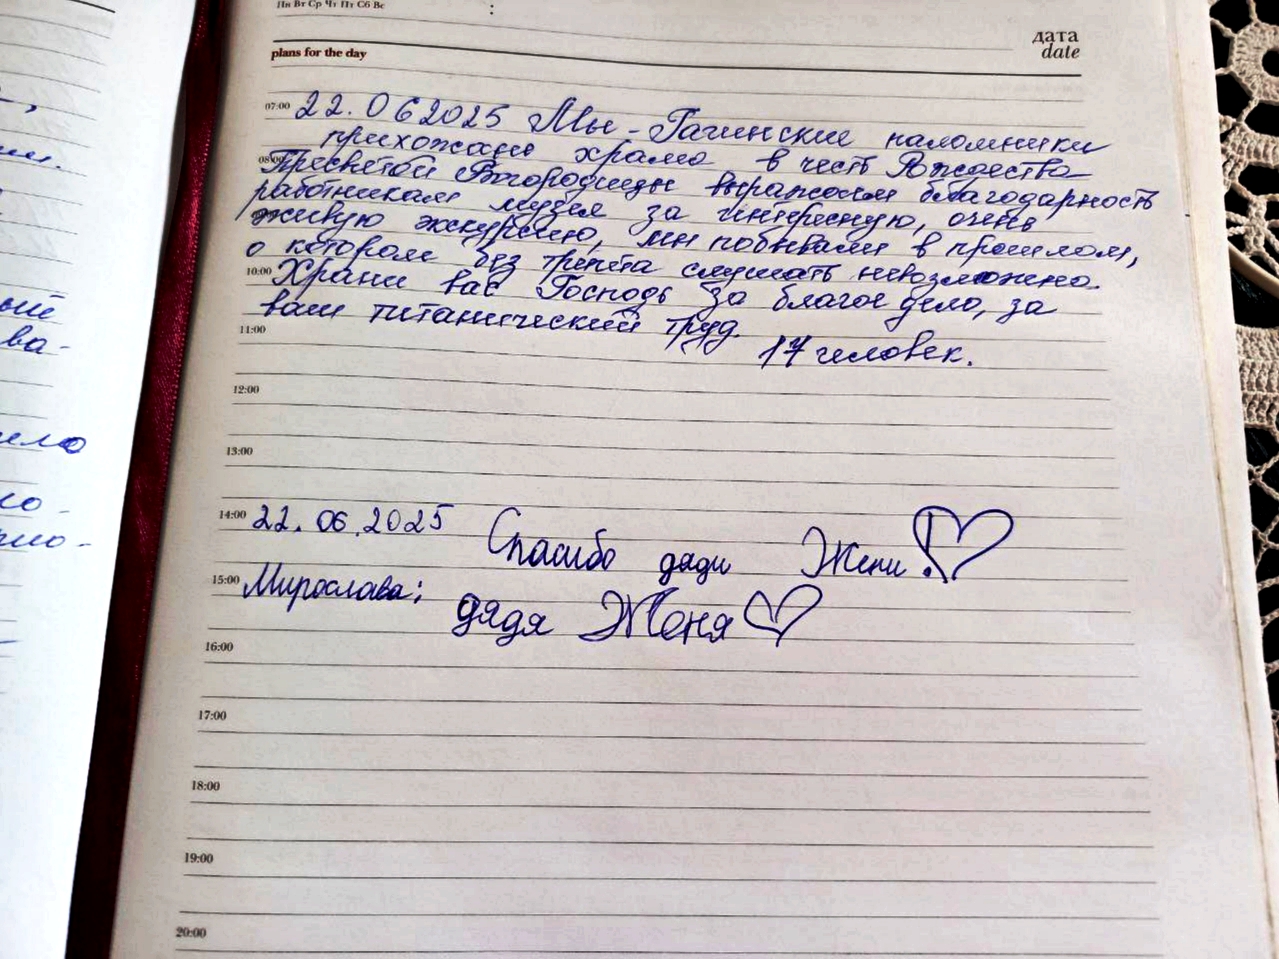 Пн Вт Ср Чт Пт Сб Вс
:
дата
plans for the day
date
07:00 22.06 2025 Мы - Гагинские паломники
прихожане храма в честь Рождества
08:00 Пресвятой Богородицы выражаем благодарность
работникам музея за интересную, очень
живую экскурсию, мы побывали в прошлом,
о котором без трепета слушать невозможно.
10:00 Храни вас Господь за благое дело, за
ваш титанический труд
11:00
17 человек.
12:00
13:00
14:00 22.06.2025 Спасибо дяди Жени!
15:00 Мирослава; дядя Женя
16:00
17:00
18:00
19:00
20:00
ый
ва-